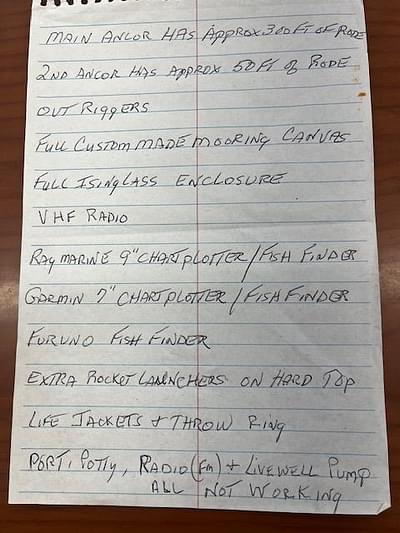 MAIN ANCOR HAS APPROX 300 FT OF RODE
2ND ANCOR HAS APPROX 50 FT OF RODE
OUT RIGGERS
FULL CUSTOM MADE MOORING CANVAS
FULL ISINGLASS ENCLOSURE
VHF RADIO
RAYMARINE 9" CHARTPLOTTER / FISH FINDER
GARMIN 7" CHARTPLOTTER / FISH FINDER
FURUNO FISH FINDER
EXTRA ROCKET LAUNCHERS ON HARD TOP
LIFE JACKETS + THROW RING
PORT. POTTY, RADIO (FM) + LIVEWELL PUMP
ALL NOT WORKING